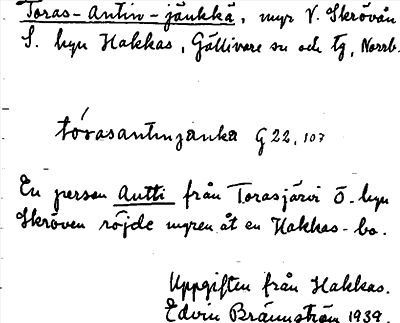 Toras-Antin-jänkkä, myr V. Skrövån
S. byn Hakkas, Gällivare sn och tg, Norrb.
tórasantinjänkä G 22, 107
En person Antti från Torasjärvi Ö. byn
Skröven röjde myren åt en Hakkas-bo.
Uppgiften från Hakkas.
Edvin Brännström 1939.